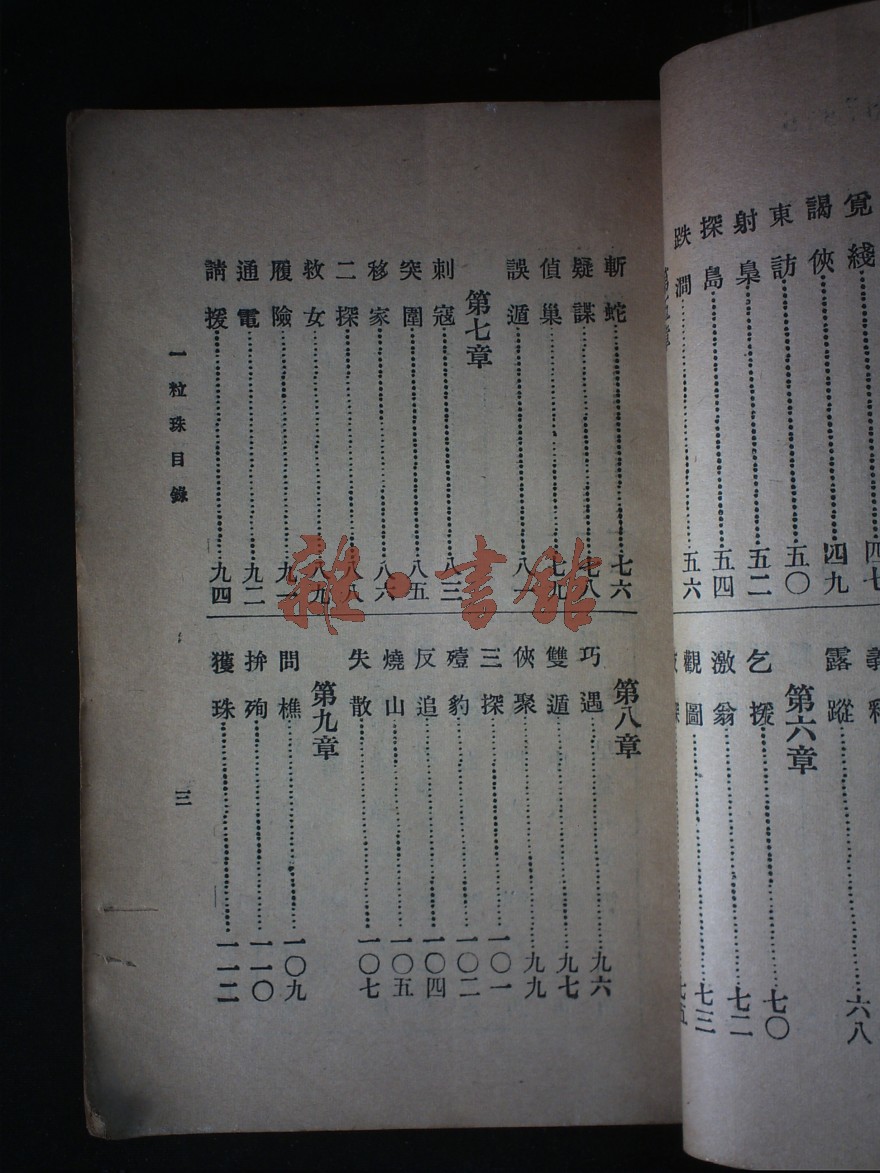 覓綫 四七
謁俠 四九
東訪 五〇
射梟 五二
探島 五四
跌澗 五六
露蹤 六八
第六章
乞援 七〇
激翁 七二
觀圖 七三
七五
斬蛇 七六
疑謀 七八
偵巢 七九
誤遁 八一
第七章
刺寇 八三
突圍 八五
移家 八六
二探 八八
救女 八九
履險 九一
通電 九二
請援 九四
第八章
巧遇 九六
雙遁 九七
俠聚 九九
三探 一〇一
殪豹 一〇二
反追 一〇四
燒山 一〇五
失散 一〇七
第九章
問樵 一〇九
拚殉 一一〇
獲珠 一一二
一粒珠目錄
三
雜·書館